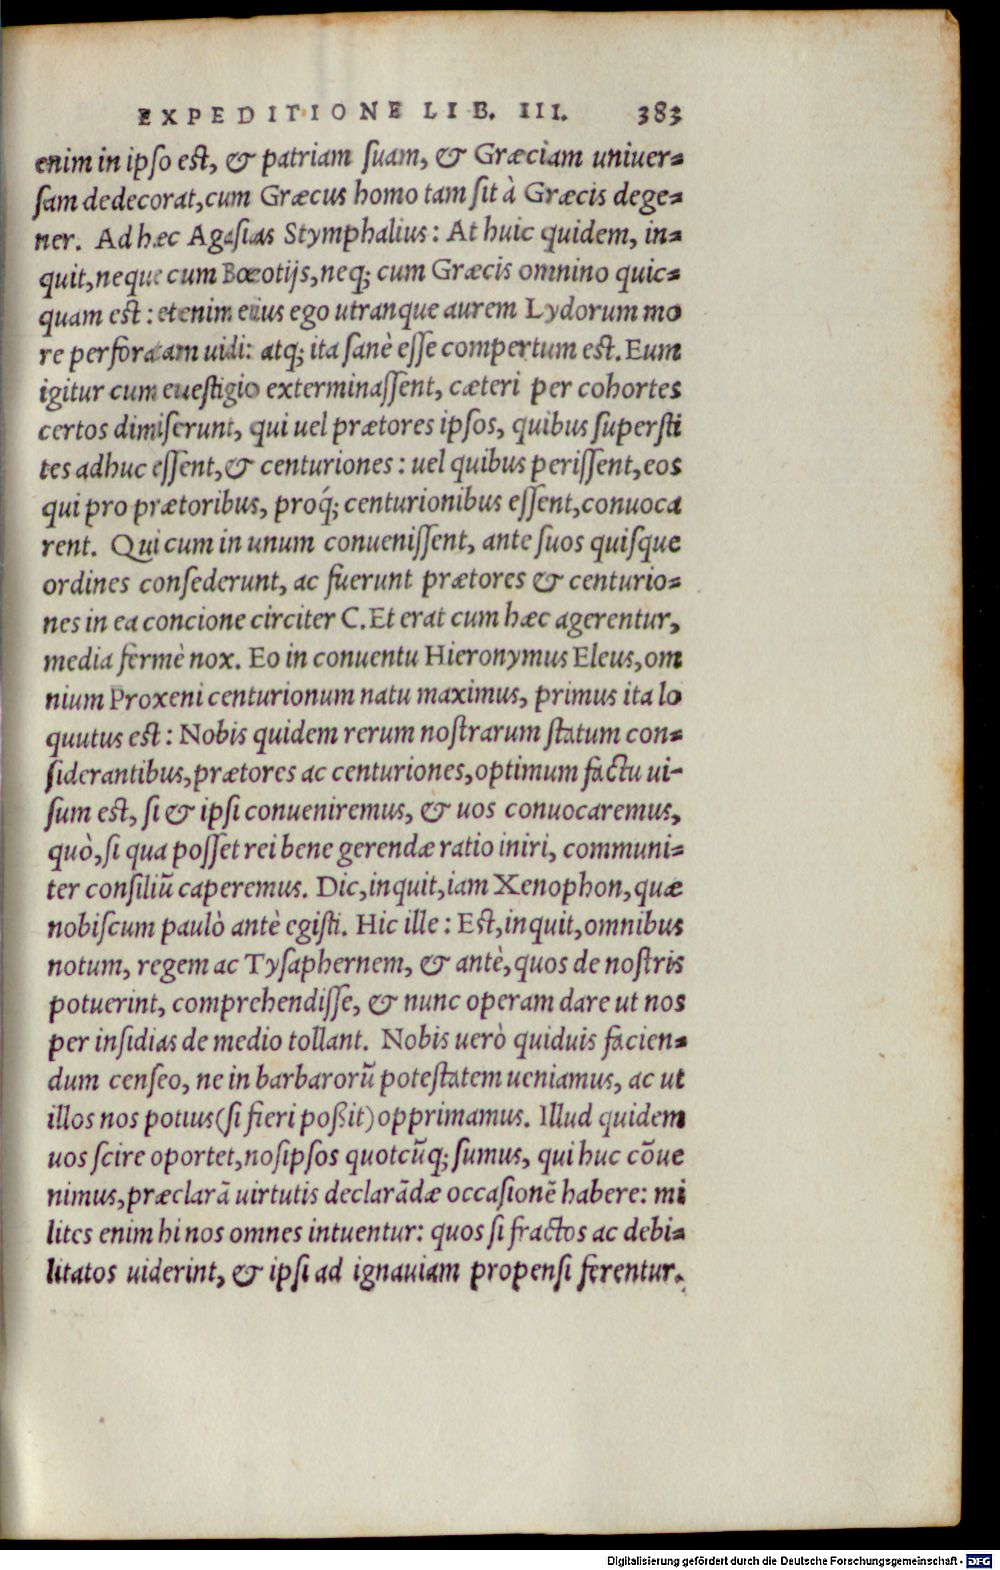 EXPEDITIONE LIB. III. 383
enim in ipso est, & patriam suam, & Græciam uniuer-
sam dedecorat, cum Græcus homo tam sit à Græcis dege-
ner. Ad hæc Agasias Stymphalius: At huic quidem, in-
quit, neque cum Bœotijs, neq; cum Græcis omnino quic-
quam est: etenim eius ego utranque aurem Lydorum mo
re perforatam uidi: atq; ita sanè esse compertum est. Eum
igitur cum euestigio exterminassent, cæteri per cohortes
certos dimiserunt, qui uel prætores ipsos, quibus supersti
tes adhuc essent, & centuriones: uel quibus perissent, eos
qui pro prætoribus, proq́; centurionibus essent, conuoca
rent. Qui cum in unum conuenissent, ante suos quisque
ordines consederunt, ac fuerunt prætores & centurio-
nes in ea concione circiter C. Et erat cum hæc agerentur,
media fermè nox. Eo in conuentu Hieronymus Eleus, om
nium Proxeni centurionum natu maximus, primus ita lo
quutus est: Nobis quidem rerum nostrarum statum con-
siderantibus, prætores ac centuriones, optimum factu ui-
sum est, si & ipsi conueniremus, & uos conuocaremus,
quò, si qua posset rei bene gerendæ ratio iniri, communi-
ter consiliũ caperemus. Dic, inquit, iam Xenophon, quæ
nobiscum paulò antè egisti. Hic ille: Est, inquit, omnibus
notum, regem ac Tysaphernem, & antè, quos de nostris
potuerint, comprehendisse, & nunc operam dare ut nos
per insidias de medio tollant. Nobis uerò quiduis facien-
dum censeo, ne in barbarorũ potestatem ueniamus, ac ut
illos nos potius (si fieri poßit) opprimamus. Illud quidem
uos scire oportet, nosipsos quotcũq; sumus, qui huc cõue
nimus, præclarã uirtutis declarãdæ occasionẽ habere: mi
lites enim hi nos omnes intuentur: quos si fractos ac debi-
litatos uiderint, & ipsi ad ignauiam propensi ferentur.
Digitalisierung gefördert durch die Deutsche Forschungsgemeinschaft - DFG